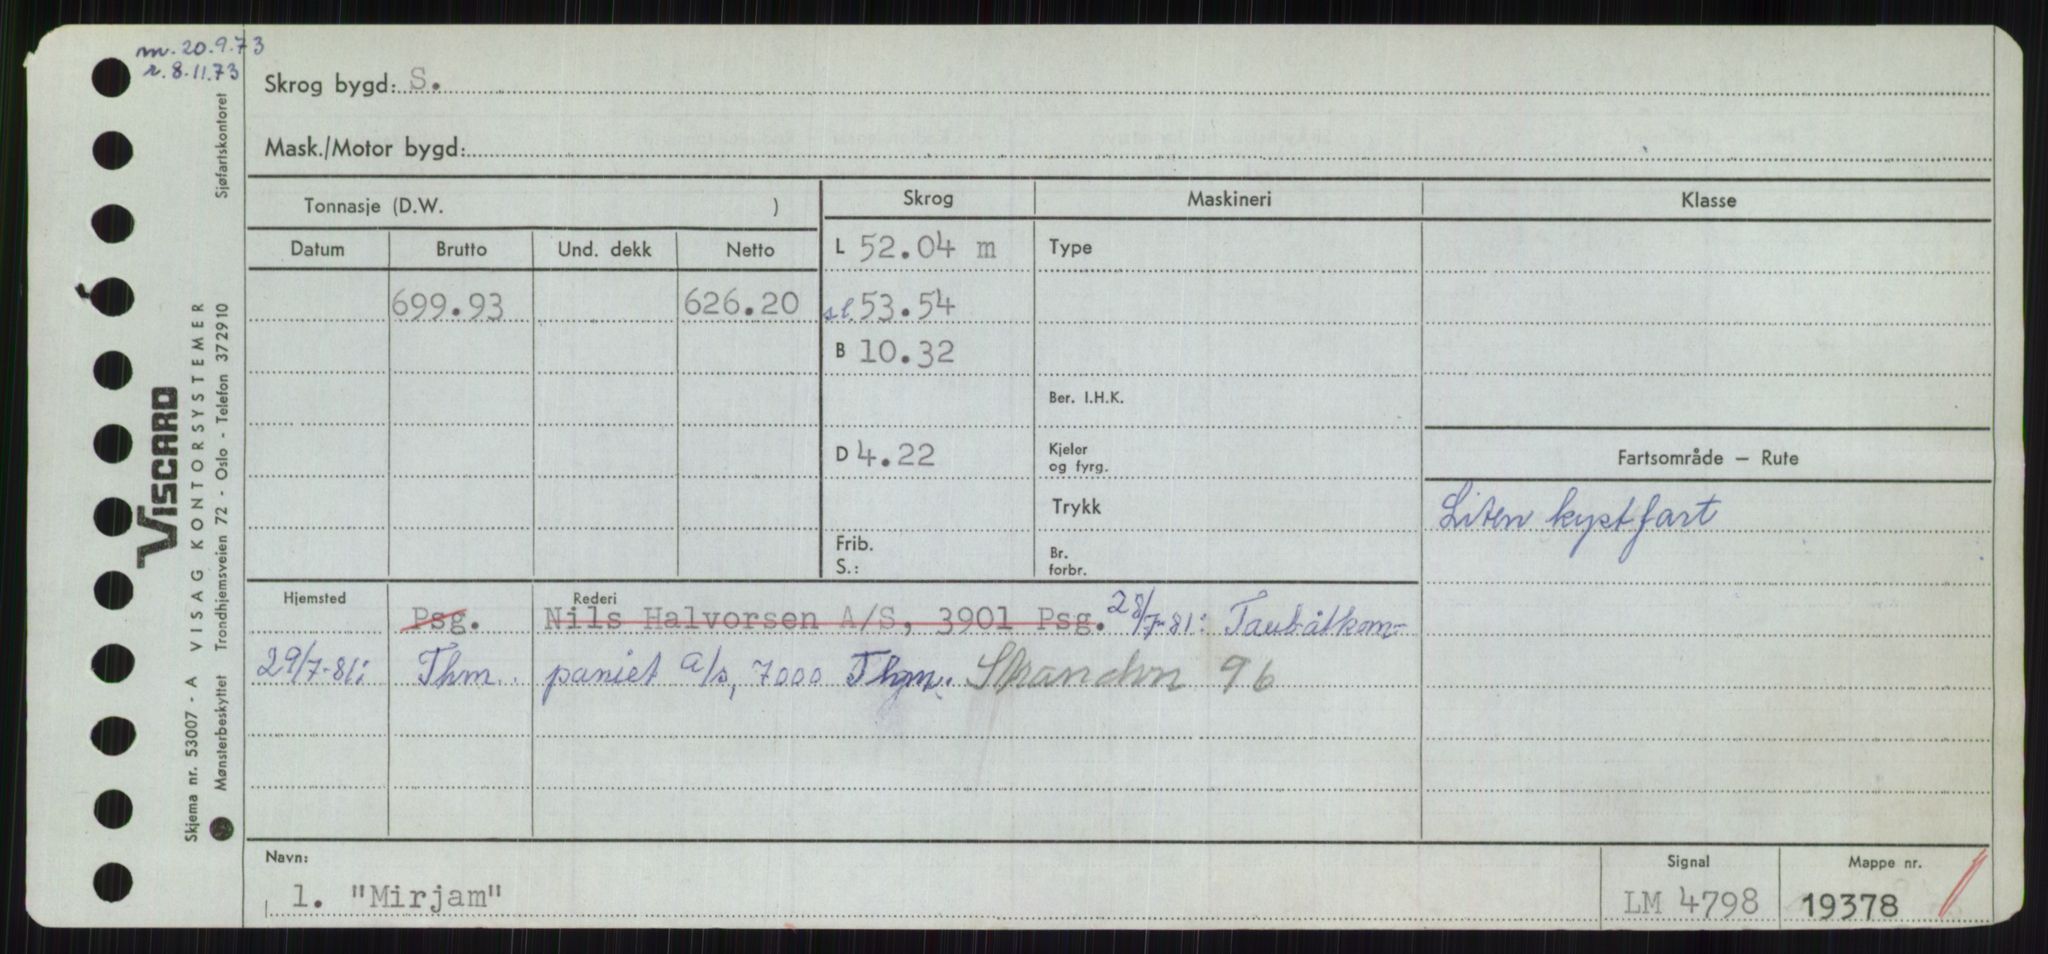 m. 20.9.73
r. 8.11.73
Skrog bygd: S.
Mask./Motor bygd:
Tonnasje (D.W. )
Skrog
Maskineri
Klasse
Datum Brutto Und. dekk Netto
L 52.04 m
Type
699.93 626.20
sl. 53.54
B 10.32
Ber. I.H.K.
D 4.22
Kjeler
og fyrg.
Fartsområde — Rute
Trykk
Liten kystfart
Frib.
S.:
Br.
forbr.
Hjemsted
Rederi
Psg. Nils Halvorsen A/S, 3901 Psg. 28/7-81: Taubåtkom-
29/7-81: Thm. paniet a/s, 7000 Thm. 96
Navn:
1. "Mirjam"
Signal
LM 4798
Mappe nr.
19378
VISCARD
Skjema nr. 53007 - A VISAG KONTORSYSTEMER
Mønsterbeskyttet Trondhjemsveien 72 - Oslo - Telefon 372910 Sjøfartskontoret